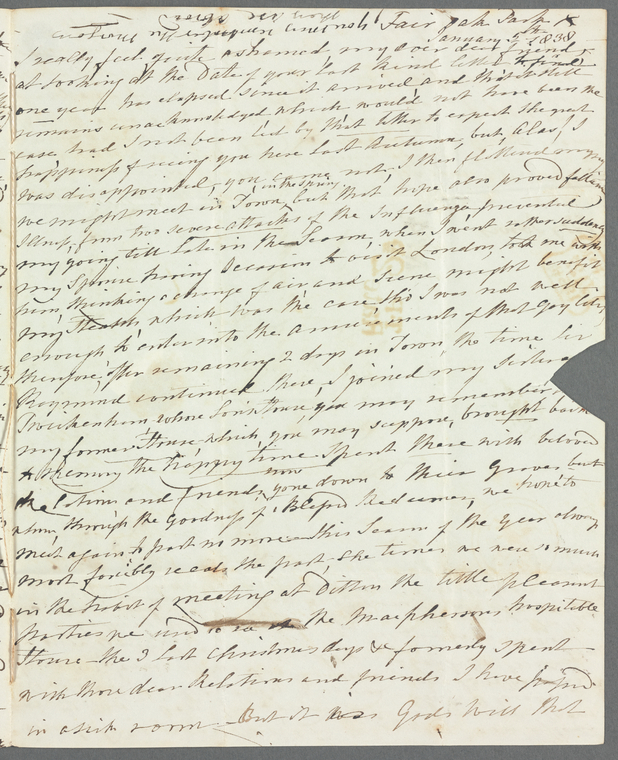 Fair Oak Park
January 5th 1838
I really feel quite ashamed my ever dear Friend
at looking at the Date of your last kind letter to find
one year has elapsed since it arrived and that it still
remains unacknowledged which would not have been the
case had I not been led by that letter to expect the great
happiness of seeing you here last Autumn, but, Alas! I
was disappointed, you came not, I then flattered myself
we might meet in Town in the Spring but that hope also proved
Illness, from two severe attacks of the Influenza prevented
my going till late in the Season, when I went rather suddenly
my Spouse having occasion to visit London, took me with
him, thinking a change of air and Scene might benefit
my Health, which was the case tho' I was not well
enough to enter into the amusements of that Gay City
therefore, after remaining 2 days in Town, the time Sir
Raymond continued there, I joined my Sister
Twickenham whose House, you may remember
my former House, which, you may suppose, brought back
to Memory the happy time spent there with beloved
Relations and friends, now gone down to their Graves but
whom, through the Goodness of a Blessed Redeemer, we hope to
meet again to part no more. This Season of the Year always
most forcibly recals the past, the times we were so much
in the habit of meeting at Ditton the little pleasant
parties we used to the Macphersons hospitable
House the 3 last Christmas days formerly spent
with those dear Relations and friends I have passed
in a sick room But it is Gods Will that